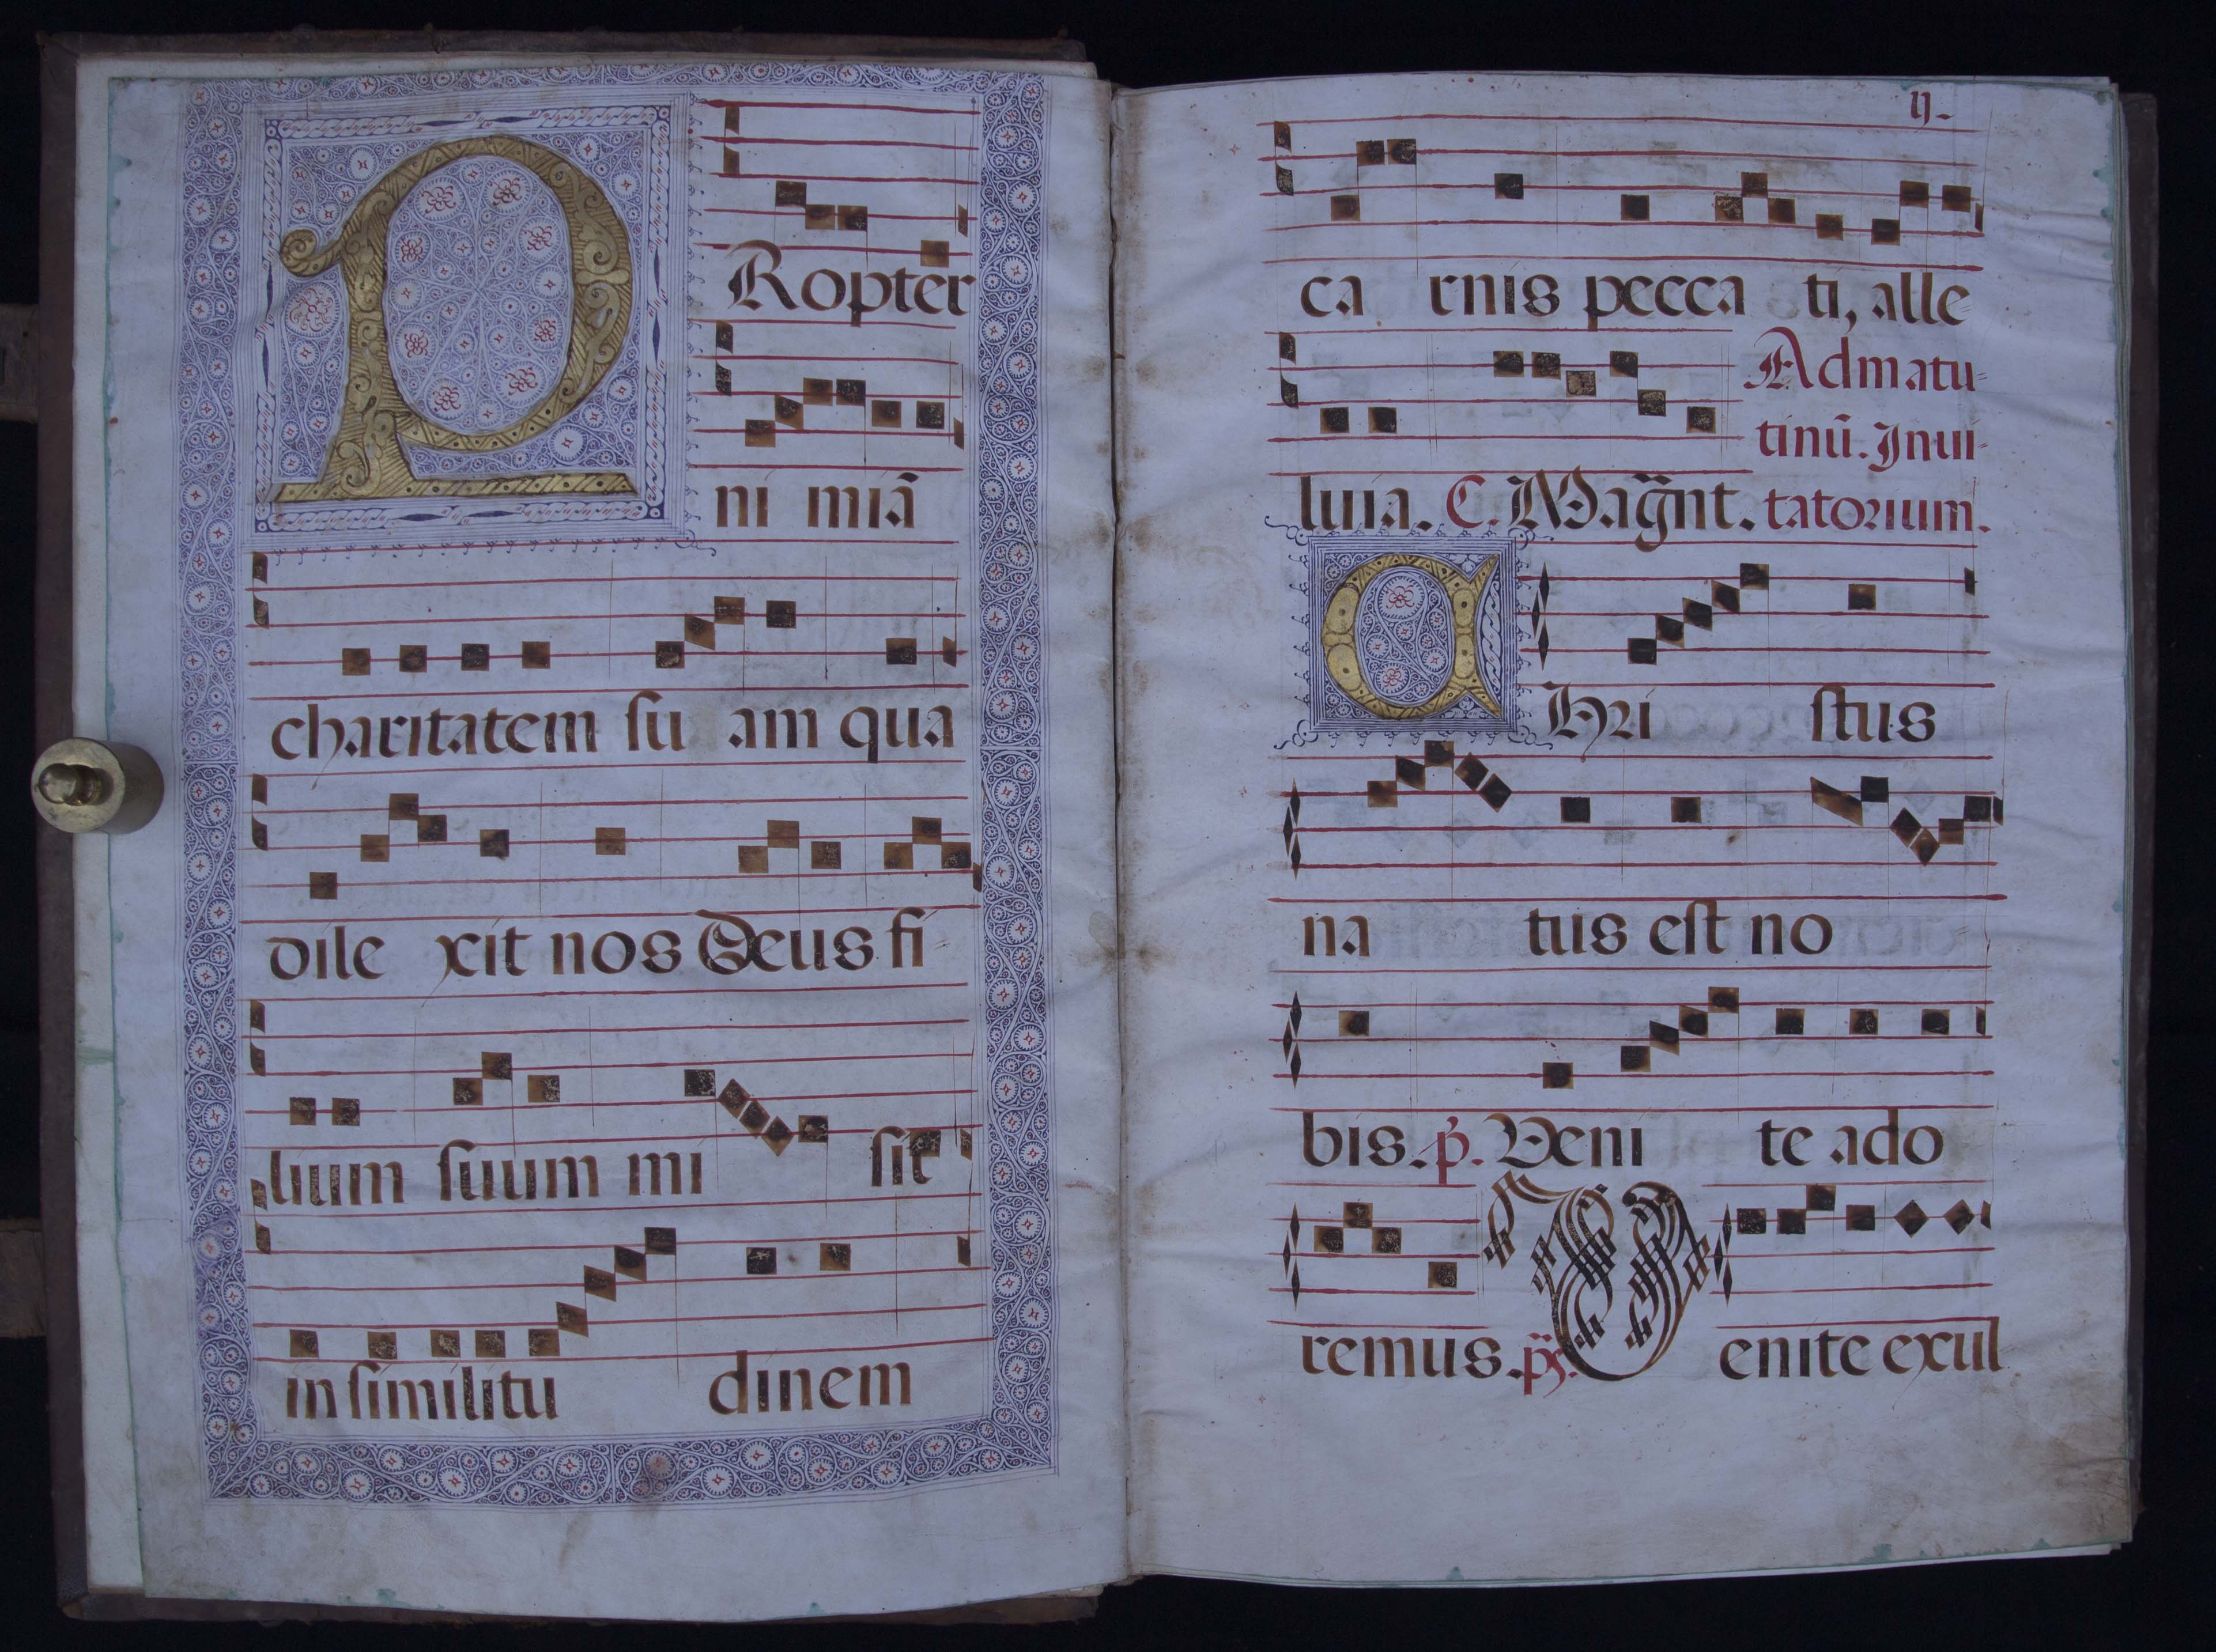 PRopter
ni miã
charitatem su am qua
dile xit nos Deus fi
lium suum mi sit
in similitu dinem
ij.
ca rnis pecca ti, alle
Ad matu-
tinũ. Inui-
luia. C. Magnt. tatorium.
CHri stus
na tus est no
bis. p. Veni te ado
remus. ps. Venite exul